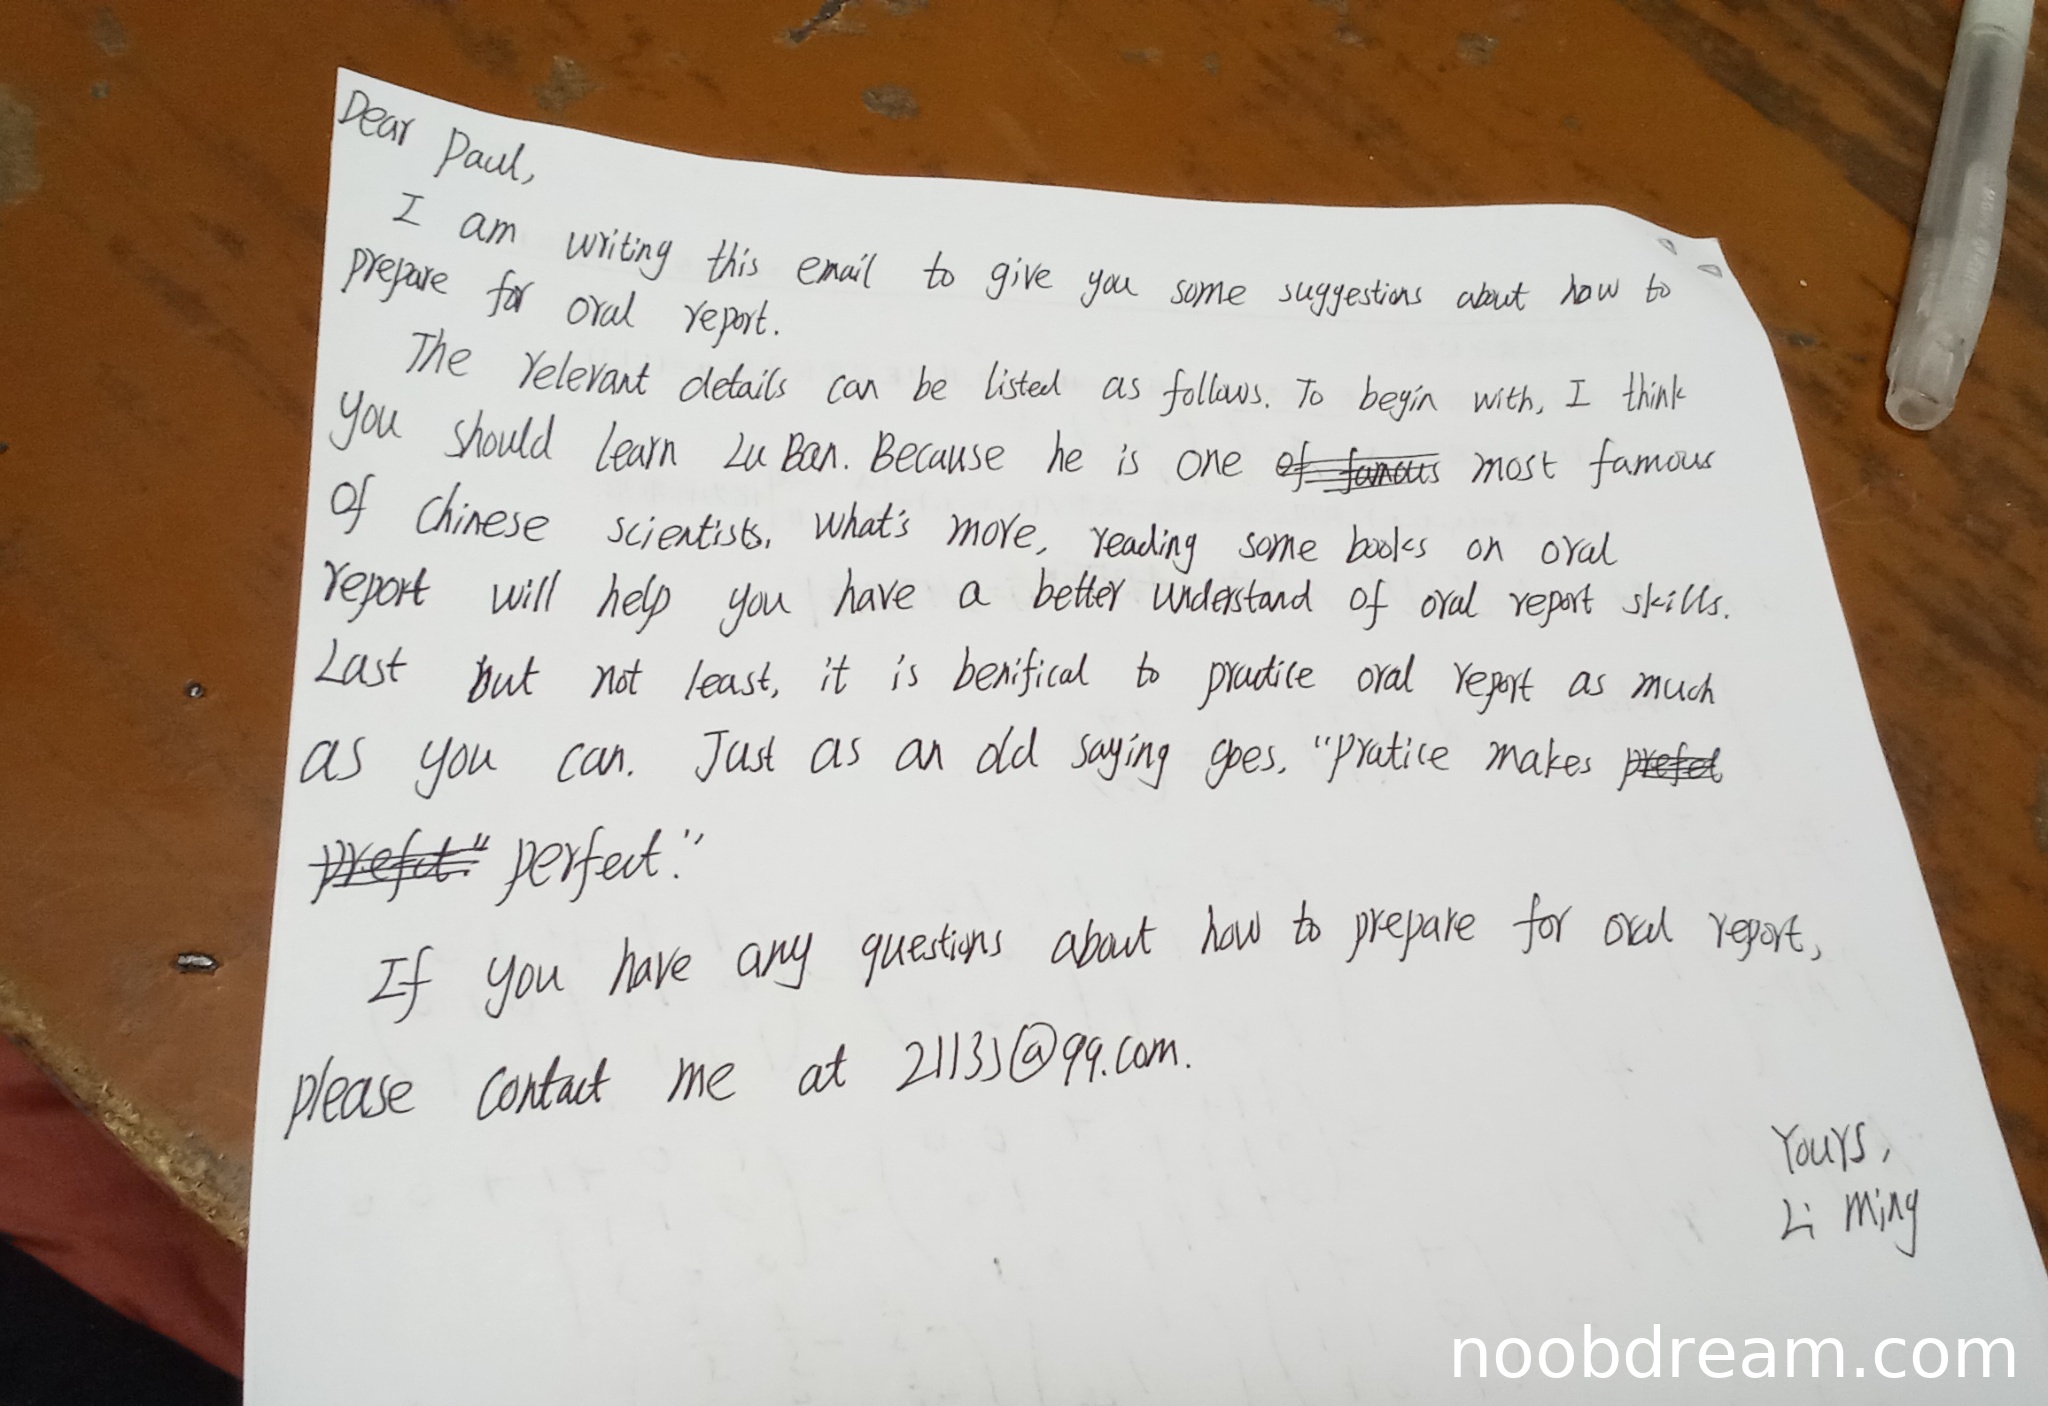 Dear Paul,
I am writing this email to give you some suggestions about how to
prepare for oral report.
The relevant details can be listed as follows. To begin with, I think
you should learn Lu Ban. Because he is one of famous most famous
of Chinese scientists. what's more, reading some books on oral
report will help you have a better understand of oral report skills.
Last but not least, it is benifical to practice oral report as much
as you can. Just as an old saying goes, "Pratice makes prefet
prefct." perfect."
If you have any questions about how to prepare for oral report,
please contact me at @qq.com.
Yours,
Li Ming
noobdream.com